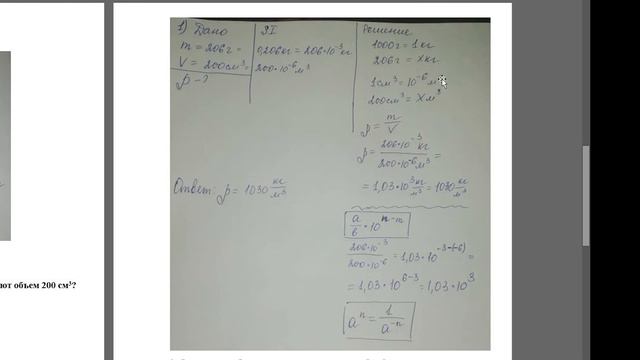 1) Дано
m = 206г =
V = 200см³ =
ρ - ?
SI
0,206кг = 206·10⁻³кг
200·10⁻⁶м³
Решение
1000г = 1кг
206г = xкг
1см³ = 10⁻⁶м³
200см³ = Xм³
ρ = m/V
ρ = 206·10⁻³кг / 200·10⁻⁶м³ =
= 1,03·10³ кг/м³ = 1030 кг/м³
Ответ: ρ = 1030 кг/м³
a/b · 10ⁿ⁻ᵐ
206·10⁻³ / 200·10⁻⁶ = 1,03·10⁻³⁻⁽⁻⁶⁾ =
= 1,03·10⁶⁻³ = 1,03·10³
aⁿ = 1/a⁻ⁿ
ют объем 200 см³?